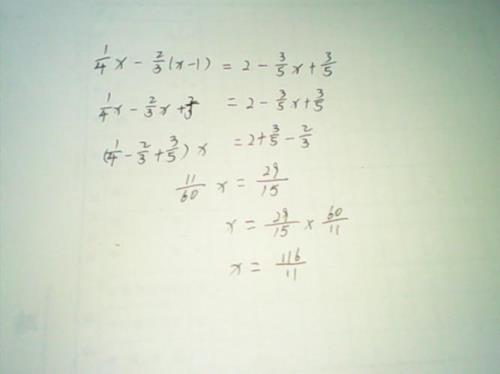 1/4 x - 2/3 (x-1) = 2 - 3/5 x + 3/5
1/4 x - 2/3 x + 2/3 = 2 - 3/5 x + 3/5
(1/4 - 2/3 + 3/5) x = 2 + 3/5 - 2/3
11/60 x = 29/15
x = 29/15 × 60/11
x = 116/11